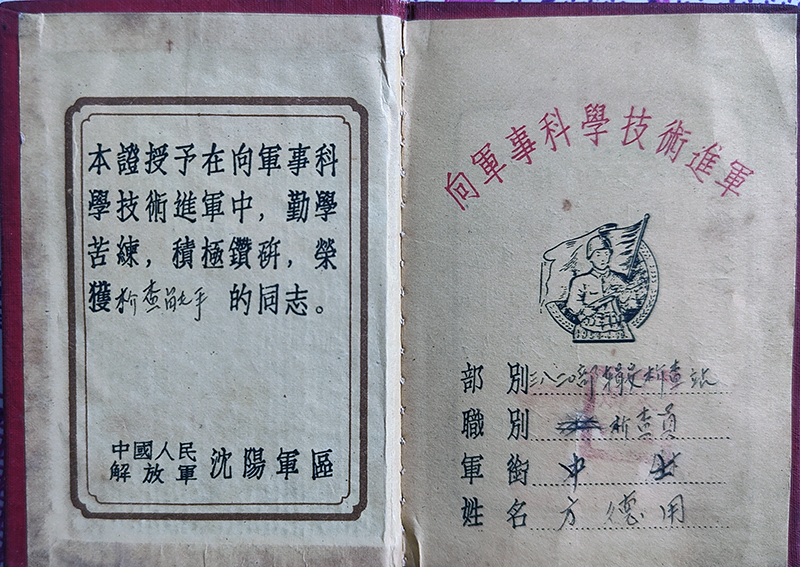 本證授予在向軍事科
學技術進軍中，勤學
苦練，積極鑽硏，榮
獲析查能手的同志。
中國人民
解放軍 沈陽軍區
向軍事科學技術進軍
部別 三八二〇部 析查站
職別 析查員
軍銜 中士
姓名 方德用